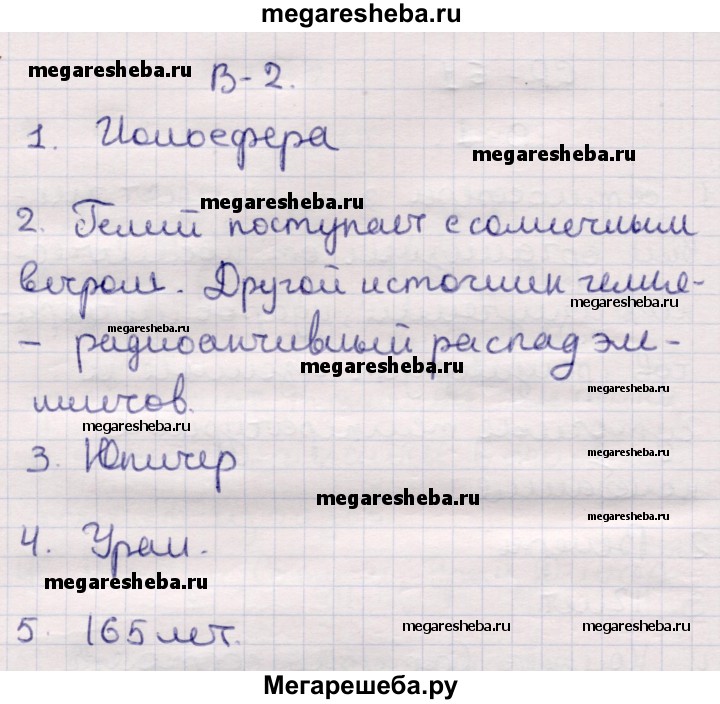 megaresheba.ru
megaresheba.ru
В-2.
1. Ионосфера
megaresheba.ru
megaresheba.ru
2. Гелий поступает с солнечным
ветром. Другой источник гелия-
megaresheba.ru
megaresheba.ru
- радиоактивный распад эле-
megaresheba.ru
megaresheba.ru
ментов.
megaresheba.ru
3. Юпитер
megaresheba.ru
megaresheba.ru
megaresheba.ru
4. Уран.
megaresheba.ru
5. 165 лет.
megaresheba.ru
megaresheba.ru
Мегарешеба.ру